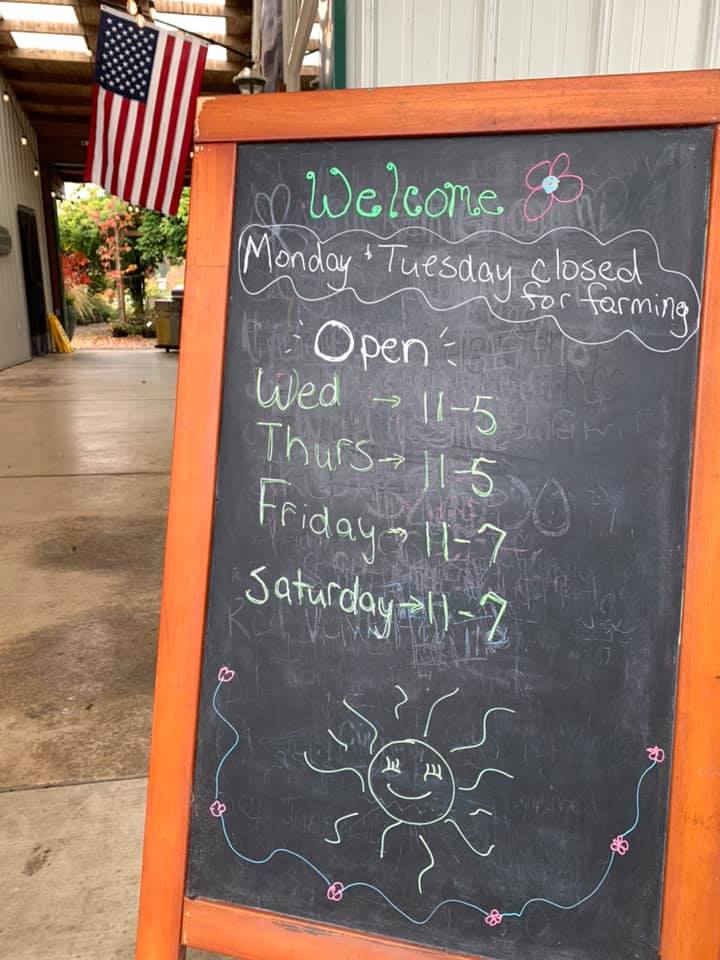 Welcome
Monday & Tuesday closed
for farming
Open
Wed → 11-5
Thurs → 11-5
Friday → 11-7
Saturday → 11-7